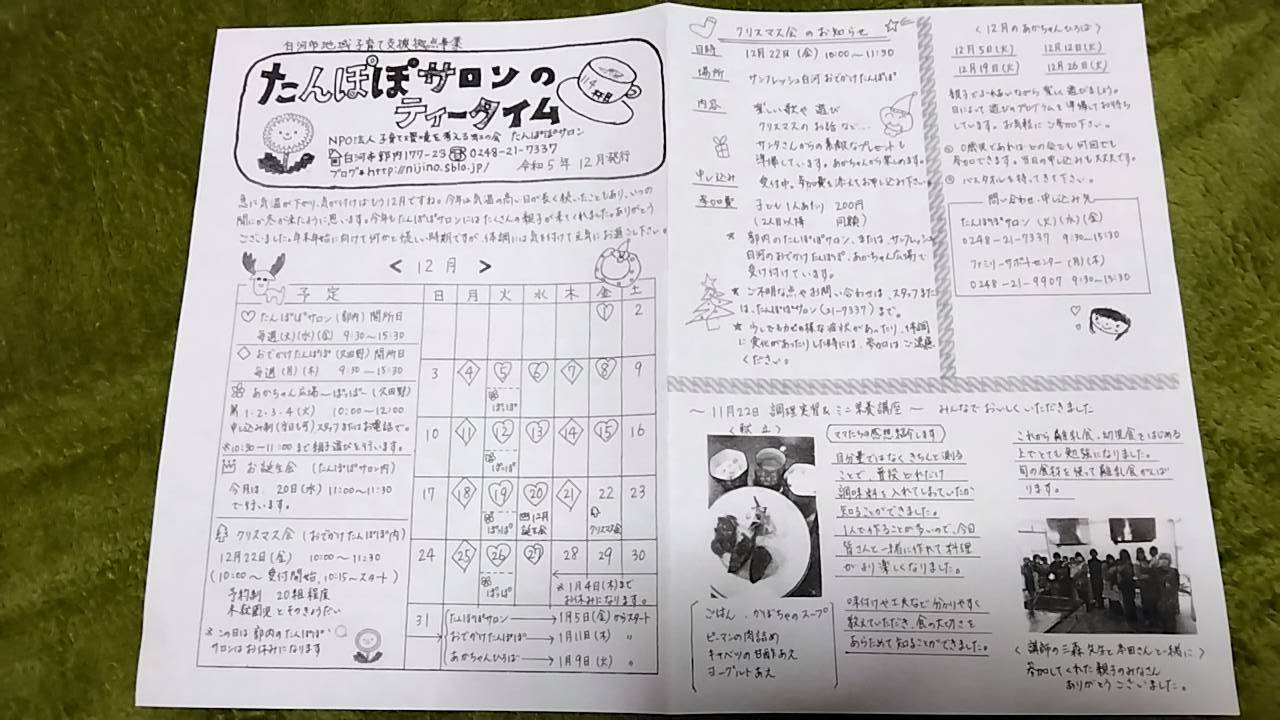 白河市地域子育て支援拠点事業
たんぽぽサロンの
ティータイム
114
杯目
NPO法人 子育て環境を考える虹の会 たんぽぽサロン
白河市郭内177-23 ☎0248-21-7337
ブログ*http://nijino.sblo.jp/ 令和5年12月発行
急に気温が下がり、気が付けばもう12月ですね。今年は気温の高い日が長く続いたこともあり、いつの
間にか冬が来たように思います。今年もたんぽぽサロンにはたくさんの親子が来てくれました。ありがとう
ございました。年末年始に向けて何かと慌しい時期ですが、体調には気を付けて元気にお過ごし下さい。
<12月>
予定
♡たんぽぽサロン(郭内)開所日
毎週(火)(水)(金) 9:30～15:30
◇おでかけたんぽぽ(久田野)開所日
毎週(月)(木) 9:30～15:30
あかちゃん広場～ぽっぽ～(久田野)
第1・2・3・4(火) 10:00～12:00
申し込み制(当日も可)スタッフまたはお電話で。
※10:30～11:00まで親子遊びを行います。
お誕生会 (たんぽぽサロン内)
今月は 20日(水) 11:00～11:30
で行います。
クリスマス会(おでかけたんぽぽ内)
12月22日(金) 10:00～11:30
(10:00～受付開始、10:15～スタート)
予約制 20組程度
未就園児とそのきょうだい
※この日は郭内のたんぽぽ
サロンはお休みになります
日 月 火 水 木 金 土
1 2
3 4 5 6 7 8 9
ぽっぽ
10 11 12 13 14 15 16
ぽっぽ
17 18 19 20 21 22 23
ぽっぽ 12月誕生会 クリスマス会
24 25 26 27 28 29 30
ぽっぽ
※1月4日(木)まで
お休みになります。
31
(たんぽぽサロン→1月5日(金)からスタート
(おでかけたんぽぽ→1月11日(木) 〃
(あかちゃんひろば→1月9日(火) 〃
クリスマス会のお知らせ
日時 12月22日(金) 10:00～11:30
場所 サンフレッシュ白河 おでかけたんぽぽ
内容 楽しい歌や遊び
クリスマスのお話など…
サンタさんからの素敵なプレゼントも
準備しています。あかちゃんから楽しめます。
申し込み 受付中。参加費を添えてお申し込み下さい。
参加費 子ども1人あたり 200円
(2人目以降 同額)
★ 郭内のたんぽぽサロン、または、サンフレッシュ
白河のおでかけたんぽぽ、あかちゃん広場で
受け付けています。
★ ご不明な点やお問い合わせは、スタッフまた
は、たんぽぽサロン(21-7337)まで。
★ 少しでもカゼの様な症状があったり、体調
に変化があったりした時には、参加はご遠慮
ください。
〈12月のあかちゃんひろば〉
12月5日(火) 12月12日(火)
12月19日(火) 12月26日(火)
親子でふれあいながら楽しく遊びましょう。
日によって遊びのプログラムを準備してお待ち
しています。お気軽にご参加下さい。
0歳児であればどの会でも何回でも
参加できます。当日の申し込みも大丈夫です。
バスタオルを持ってきて下さい。
問い合わせ・申し込み先
たんぽぽサロン (火)(水)(金)
0248-21-7337 9:30～15:30
ファミリーサポートセンター (月)(木)
0248-21-9907 9:30～15:30
～11月22日 調理実習&ミニ栄養講座～ みんなでおいしくいただきました
〈献立〉
ごはん、かぼちゃのスープ
ピーマンの肉詰め
キャベツの甘酢あえ
ヨーグルトあえ
ママたちの感想紹介します
目分量ではなく、きちんと測る
ことで、普段どれだけ
調味料を入れてしまっていたか
知ることができました。
1人で作ることが多いので、今日
皆さんと一緒に作れて料理
がより楽しくなりました。
味付けや工夫など分かりやすく
教えていただき、食の大切さを
あらためて知ることができました。
これから離乳食、幼児食をはじめる
上でとても勉強になりました。
旬の食材を使って離乳食がんば
ります。
〈講師の三森先生と本田さんと一緒に〉
参加してくれた親子のみなさん
ありがとうございました。